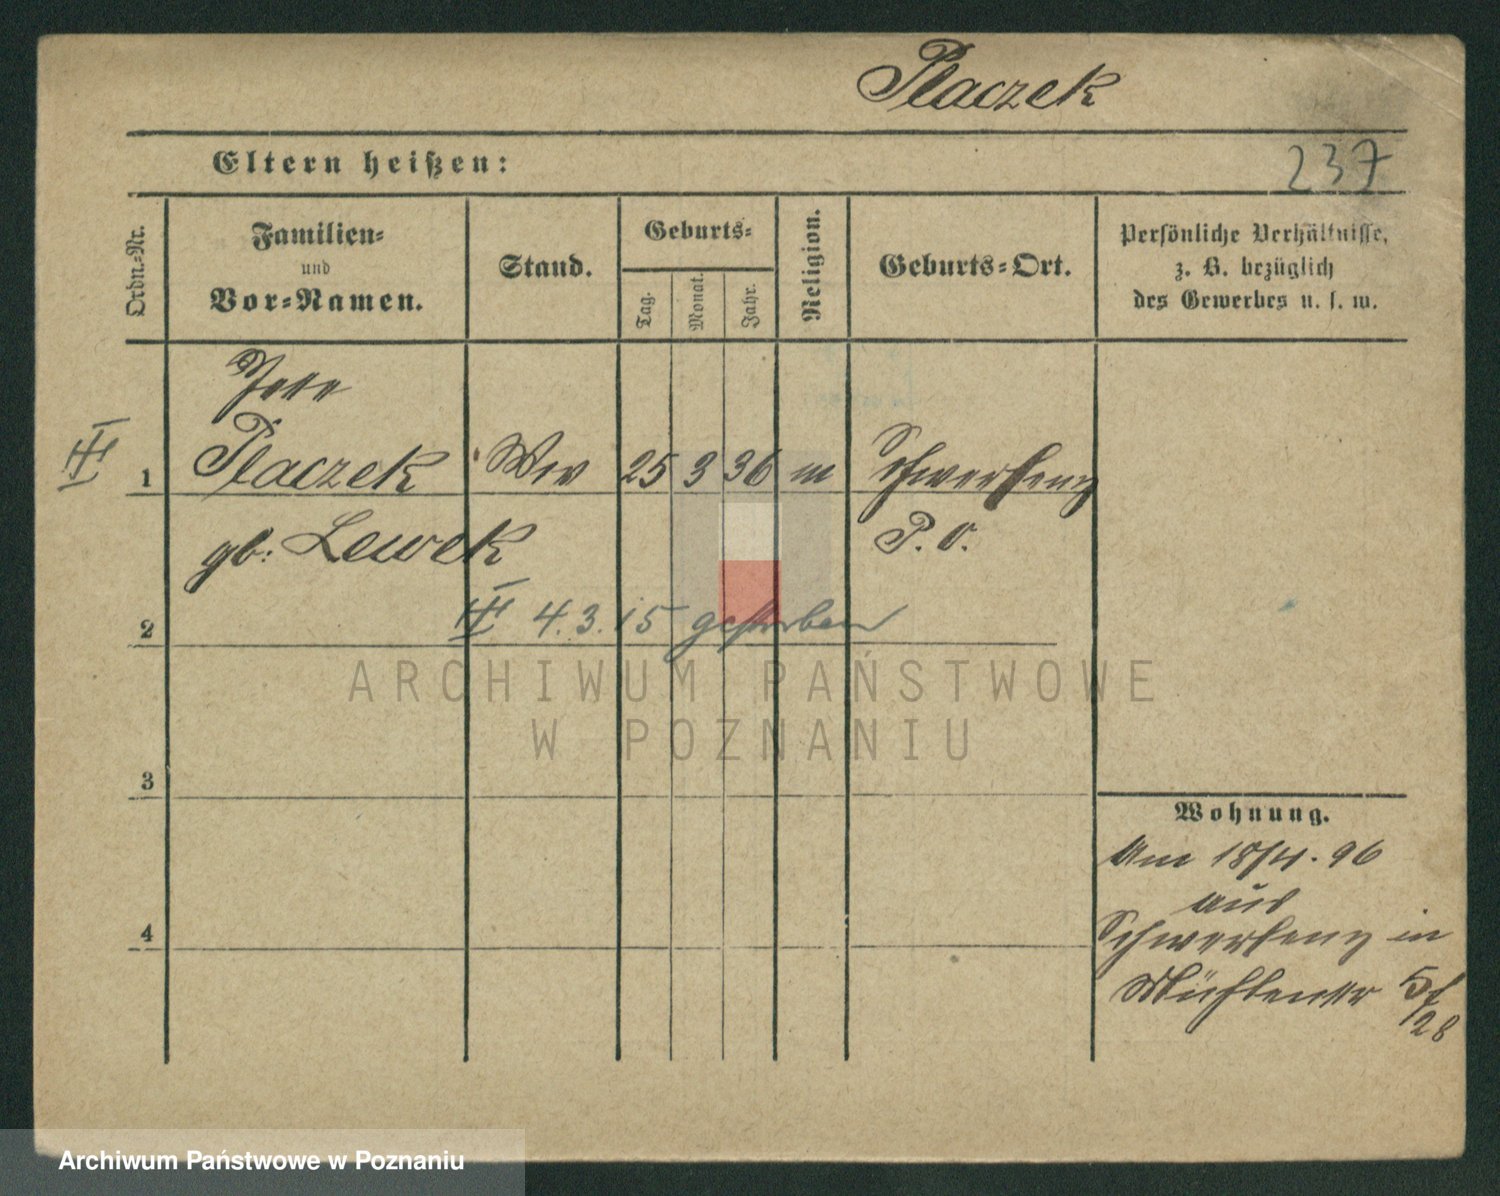 Placzek
Eltern heißen:
237
Ordn.-Nr.
Familien-
und
Vor-Namen.
Stand.
Geburts-
Tag.
Monat.
Jahr.
Religion.
Geburts-Ort.
Persönliche Verhältnisse,
z. B. bezüglich
des Gewerbes u. s. w.
Jette
1 Placzek Wwe 25 3 36 m Schwersenz
gb: Lewek P. O.
2 4.3.15 gestorben
ARCHIWUM PAŃSTWOWE
W POZNANIU
3
Wohnung.
Am 18/4. 96
aus
4 Schwersenz in
Mühlenstr 5f
/28
Archiwum Państwowe w Poznaniu